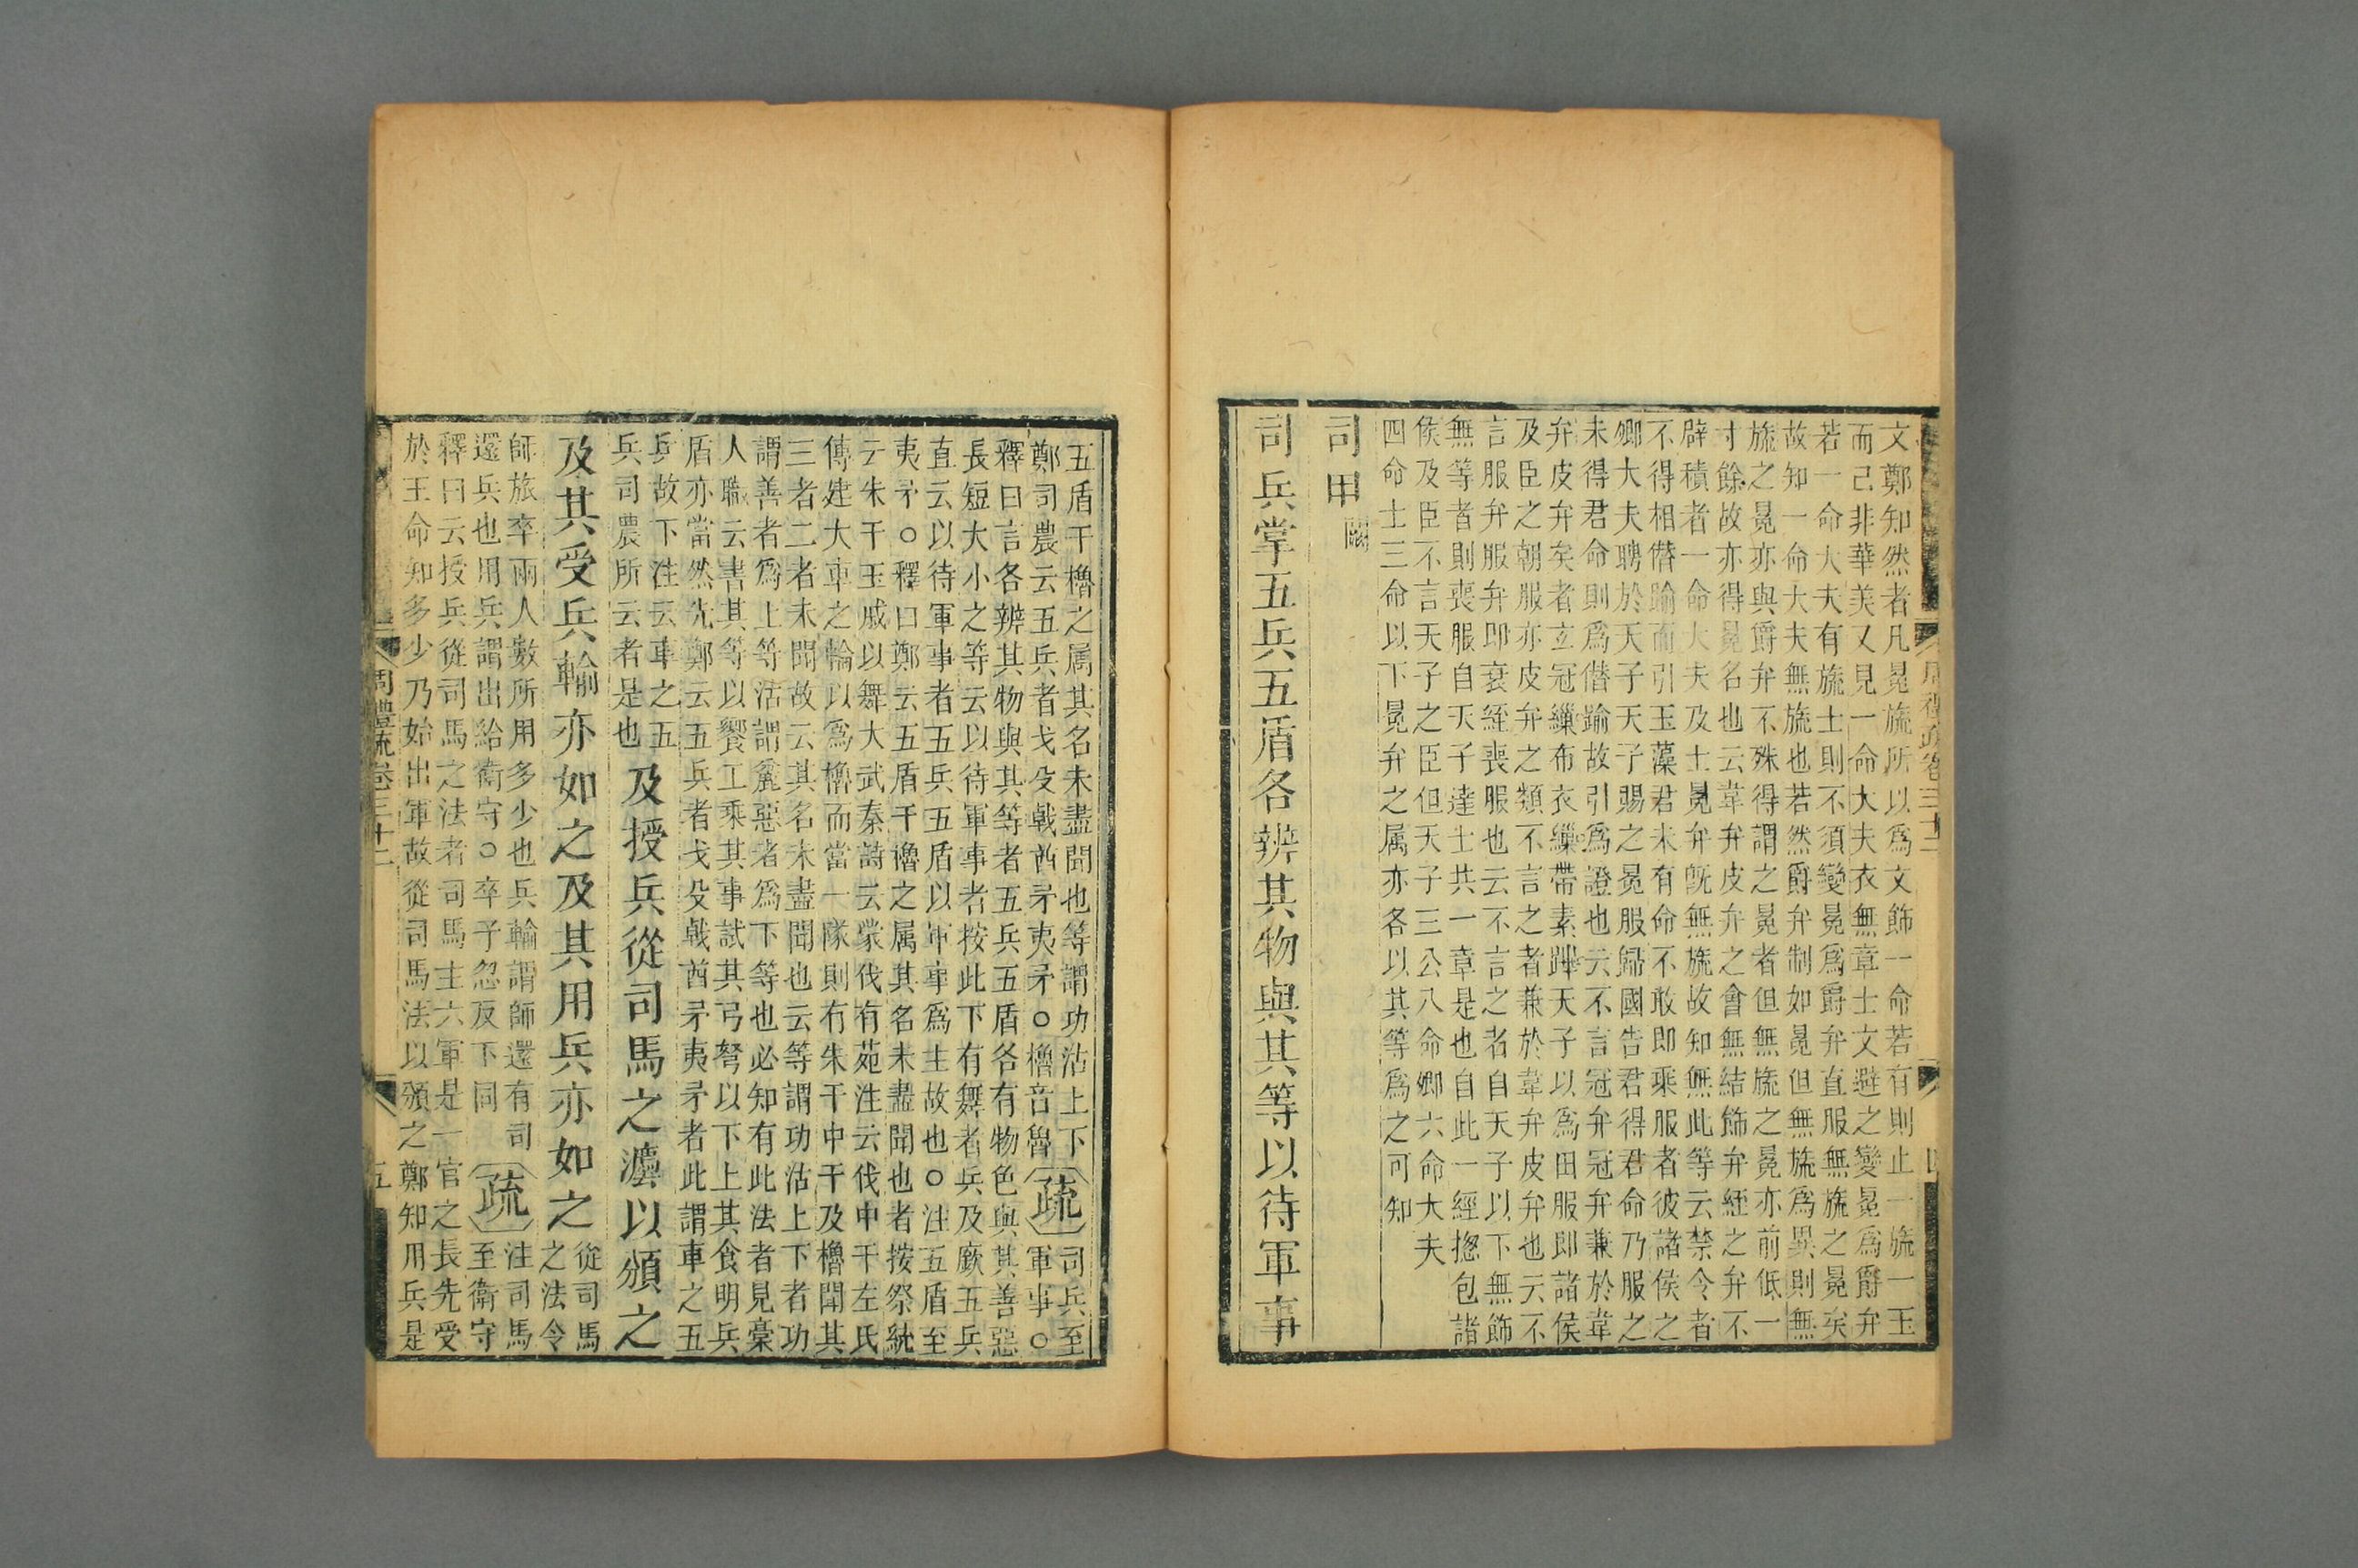 文鄭知然者凡冕旒所以爲文飾一命若有則止一旒一玉
而己非華美又見一命大夫衣無章士文避之變冕爲爵弁
若一命大夫有旒士則不須變冕爲爵弁直服無旒之冕矣
故知一命大夫無旒也若然爵弁制如冕但無旒爲異則無
旒之冕亦與爵弁不殊得謂之冕者但無旒之冕亦前低一
寸餘故亦得冕名也云韋弁皮弁之會無結飾弁絰之弁不
辟積者一命大夫及士冕弁旣無旒故知無此等云禁令者
不得相僭踰而引玉藻君未有命不敢即乘服者彼諸侯之
卿大夫聘於天子天子賜之冕服歸國告君得君命乃服之
未得君命則爲僭踰故引爲證也云不言冠弁冠弁兼於韋
弁皮弁矣者立冠緇布衣緇帶素韠天子以爲田服即諸侯
及臣之朝服亦皮弁之類不言之者兼於韋弁皮弁也云不
言服弁服弁即衰絰喪服也云不言之者自天子以下無飾
無等者則喪服自天子達士共一章是也自此一經揔包諸
侯及臣不言天子之臣但天子三公八命卿六命大夫
四命士三命以下冕弁之属亦各以其等爲之可知
司甲闕
司兵掌五兵五盾各辨其物與其等以待軍事
周禮疏卷三十二
四
五盾干櫓之属其名未盡聞也等謂功沽上下
鄭司農云五兵者戈殳戟酋矛夷矛○櫓音魯疏司兵至
軍事○
釋曰言各辨其物與其等者五兵五盾各有物色與其善惡
長短大小之等云以待軍事者按此下有舞者兵及廞五兵
直云以待軍事者五兵五盾以軍事爲主故也○注五盾至
夷矛○釋曰鄭云五盾干櫓之属其名未盡聞也者按祭統
云朱干玉戚以舞大武秦詩云蒙伐有苑注云伐中干左氏
傳建大車之輪以爲櫓而當一隊則有朱干中干及櫓聞其
三者二者未聞故云其名未盡聞也云等謂功沽上下者功
謂善者爲上等沽謂麤惡者爲下等也必知有此法者見稾
人職云書其等以饗工乘其事試其弓弩以下上其食明兵
盾亦當然先鄭云五兵者戈殳戟酋矛夷矛者此謂車之五
兵故下注云車之五
兵司農所云者是也及授兵從司馬之灋以頒之
及其受兵輸亦如之及其用兵亦如之從司馬
之法令
師旅卒兩人數所用多少也兵輸謂師還有司
還兵也用兵謂出給衞守○卒子忽反下同疏注司馬
至衞守
釋曰云授兵從司馬之法者司馬主六軍是一官之長先受
於王命知多少乃始出軍故從司馬法以頒之鄭知用兵是
周禮疏卷三十二
五